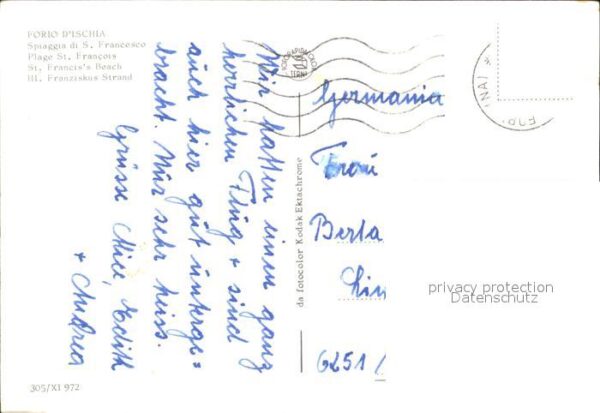 FORIO D'ISCHIA
Spiaggia di S. Francesco
Plage St. François
St. Francis's Beach
Hl. Franziskus Strand
Wir hatten einen ganz
herrlichen Flug + sind
auch hier gut unterge=
bracht. Nur sehr heiss.
Grüsse Edith
+ Andrea
da fotocolor Kodak Ektachrome
TERNI
NA) *
Germania
Frau
Berta
Lin
6251
privacy protection
Datenschutz
305/XI 972